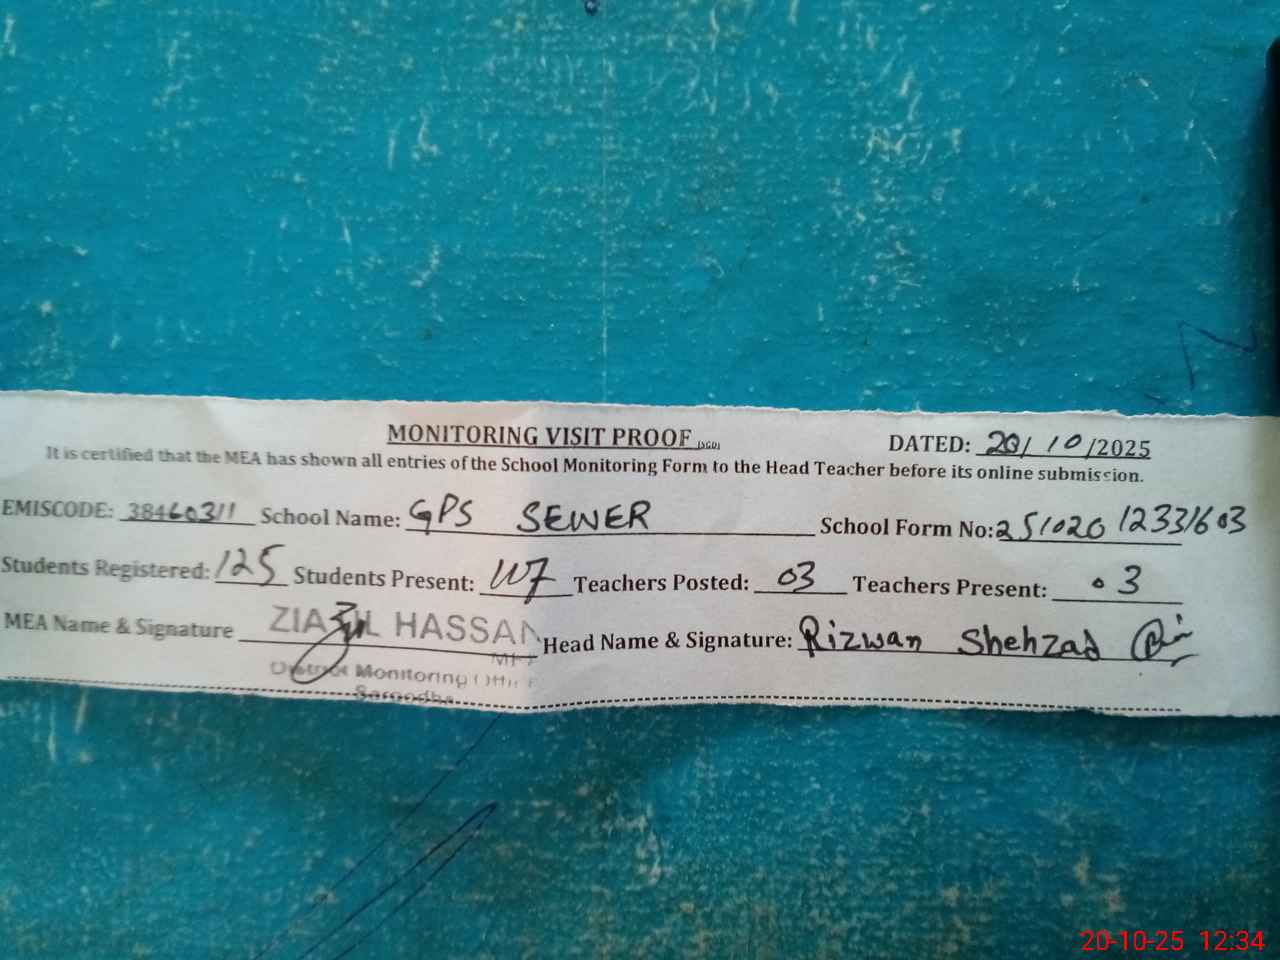 MONITORING VISIT PROOF (SGD) DATED: 20/10/2025
It is certified that the MEA has shown all entries of the School Monitoring Form to the Head Teacher before its online submission.
EMISCODE: 38460311 School Name: GPS SEWER School Form No: 251020 12331603
Students Registered: 125 Students Present: 107 Teachers Posted: 03 Teachers Present: 03
MEA Name & Signature ZIA UL HASSAN Head Name & Signature: Rizwan Shehzad
District Monitoring Office
Sargodha
20-10-25 12:34